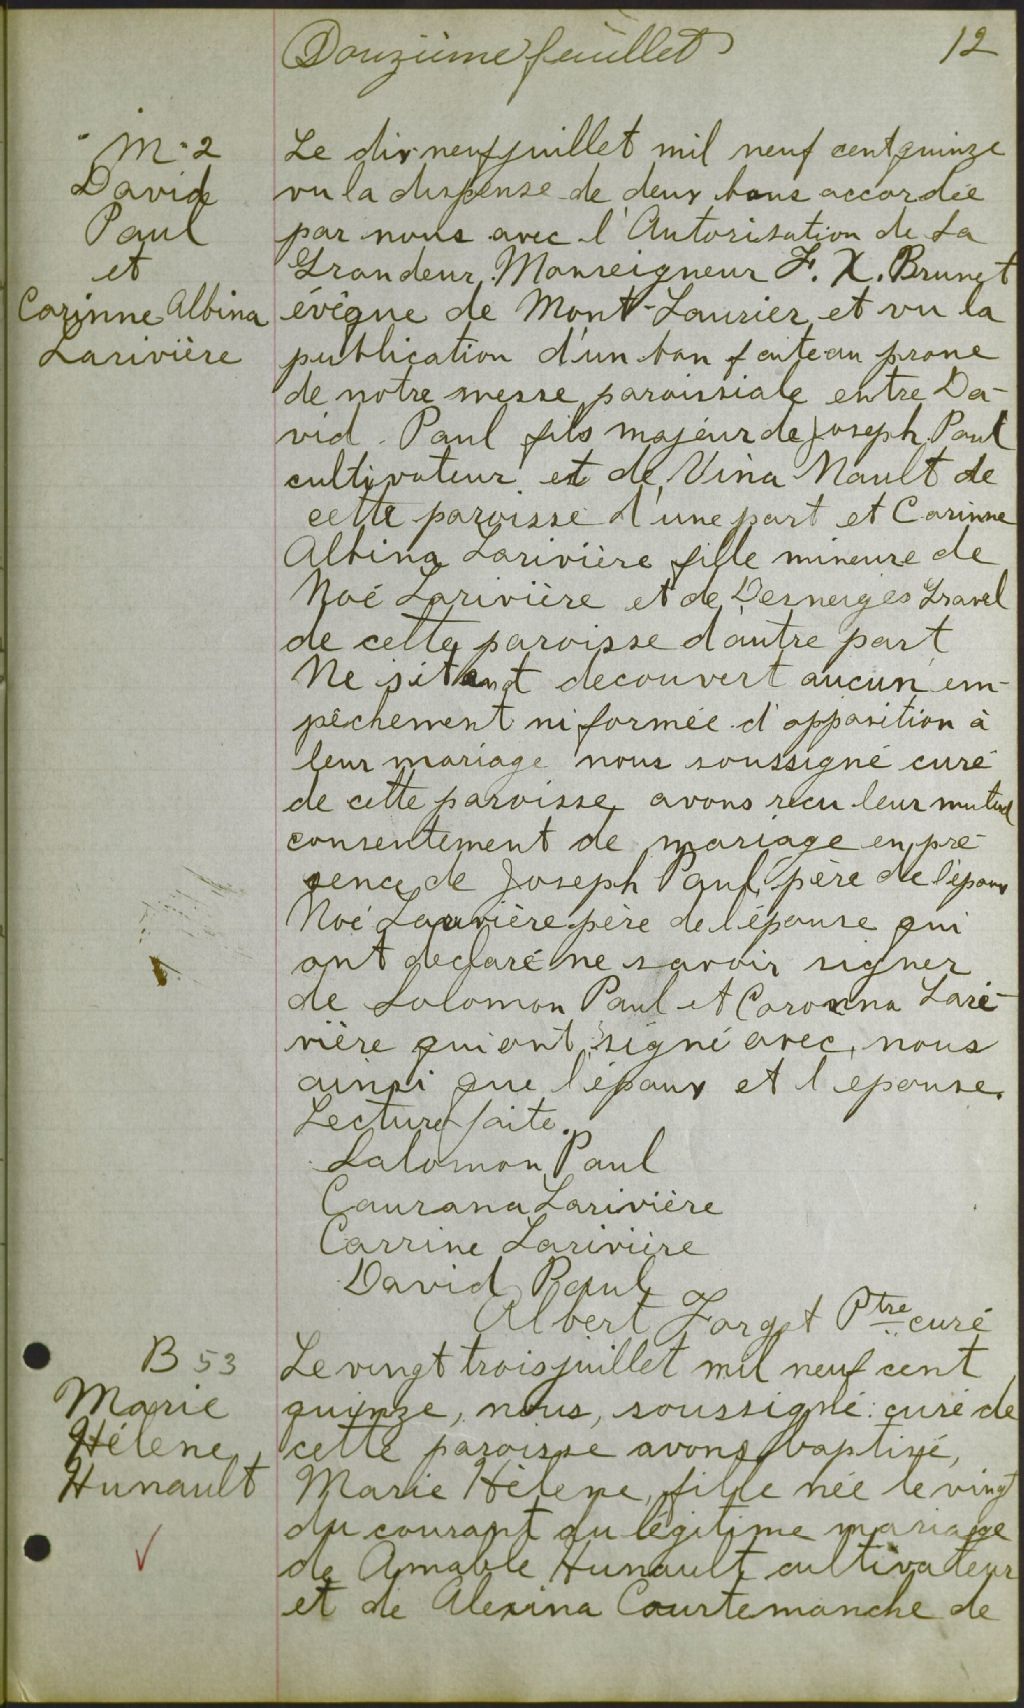 Douzième feuillet
12
M-2
David
Paul
et
Corinne Albina
Larivière
Le dix neuf juillet mil neuf cent quinze
vu la dispense de deux bans accordée
par nous avec l'Autorisation de Sa
Grandeur Monseigneur F. X. Brunet
évêque de Mont-Laurier et vu la
publication d'un ban faite au prone
de notre messe paroissiale entre Da-
vid Paul fils majeur de Joseph Paul
cultivateur et de Vina Nault de
cette paroisse d'une part et Corinne
Albina Larivière fille mineure de
Noé Larivière et de Desneiges Gravel
de cette paroisse d'autre part
Ne decouvert aucun em-
pêchement ni formée d'opposition à
leur mariage nous soussigné curé
de cette paroisse avons recu leur mutuel
consentement de mariage en pré-
sence de Joseph Paul, père de l'époux
Noé Larivière père de l'épouse qui
ont declaré ne savoir signer
de Solomon Paul et Caronna Lari-
vière qui ont signé avec nous
ainsi que l'époux et l epouse.
Lecture faite.
Salomon Paul
Caurana Larivière
Carrine Larivière
David Paul
Albert Forget Ptre curé
B 53
Marie
Hélene
Hunault
Le vingt trois juillet mil neuf cent
quinze, nous, soussigné curé de
cette paroisse avons baptisé,
Marie Hélene, fille née le vingt
du courant du légitime mariage
de Amable Hunault cultivateur
et de Alexina Courtemanche de